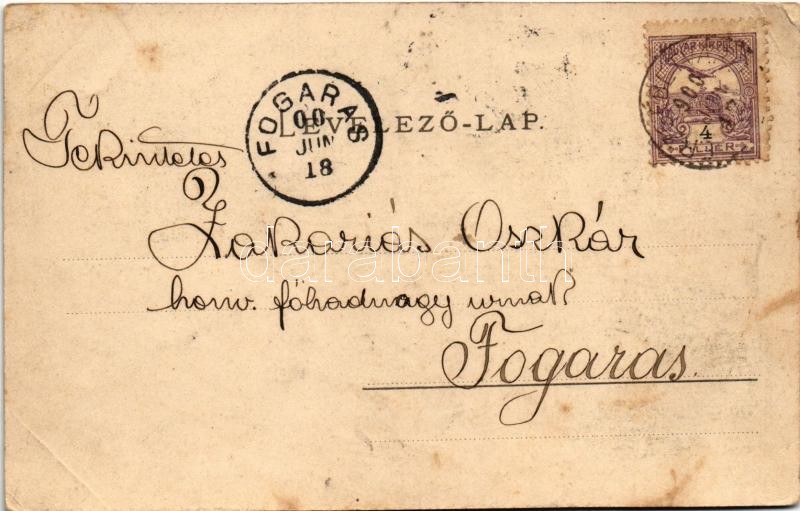 FOGARAS
00
JUN
18
LEVELEZŐ-LAP.
MAGYAR KIR. POSTA
4
FILLÉR
Tekintetes
Zakariás Oszkár
honv. főhadnagy urnak
Fogaras.
darabanth